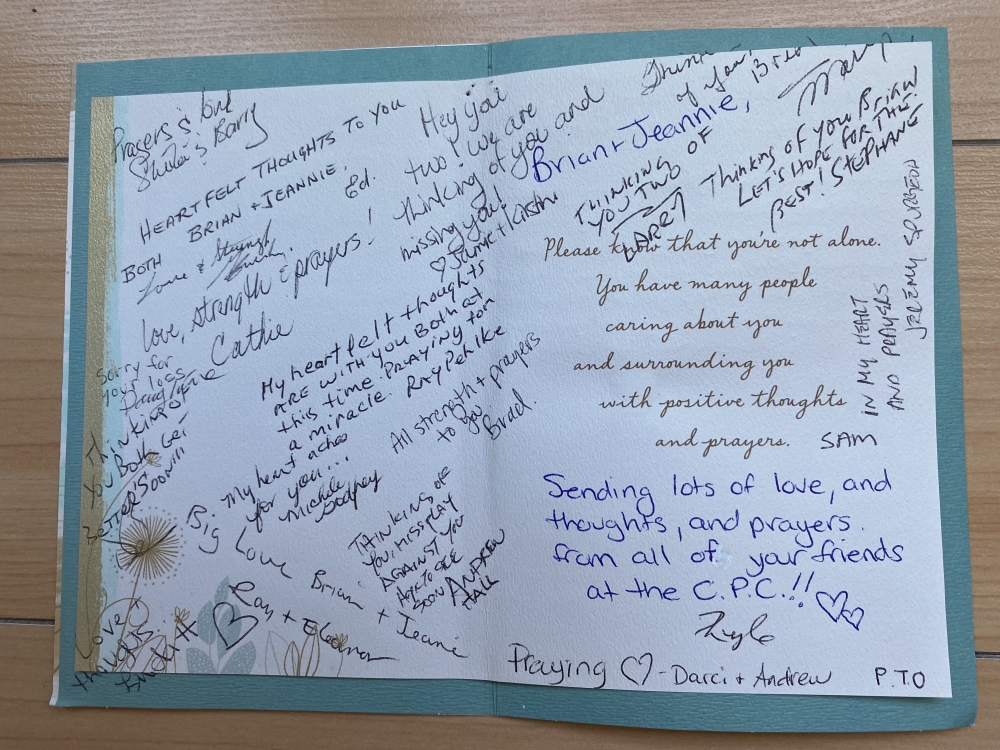 Prayers & love
Sheila & Barry
HEART FELT THOUGHTS TO YOU
BOTH
BRIAN + JEANNIE.
Ed.
Love & Strength
love, strength & prayers!
Cathie
Sorry for
your loss
THINKING OF
YOU BOTH GET
BETTER SOON!!!
My heart felt thoughts
ARE WITH YOU BOTH AT
this time. PRAYING for
a miracle. Ray Pehlke
My heart aches
for you...
Michele
Godfrey
Big Love Brian + Jeanie
Ray + Eleanor
Love +
thoughts
Hey you
two! We are
thinking of you and
missing you!
♡ Jamie + Kristin
All strength + prayers
to you
Brad.
THINKING OF
YOU, MISS PLAY
AGAINST YOU
HOPE TO SEE
SOON ANDREW
HALL
Thinking
of you,
Brian + Jeannie,
THINKING
YOU TWO OF
LARRY
Thinking of you Brian!
LET'S HOPE FOR THE
BEST! STEPHANE
Please know that you're not alone.
You have many people
caring about you
and surrounding you
with positive thoughts
and prayers.
SAM
IN MY HEART
AND PRAYERS
JEREMY SPURGEON
Sending lots of love, and
thoughts, and prayers.
from all of your friends
at the C.P.C.!!
Kyle
Praying ♡ - Darci + Andrew
P.T.O